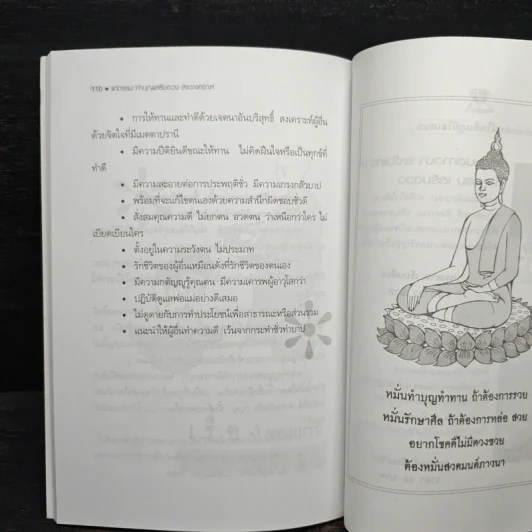 110 ★ แก้กรรม ทำบุญเสริมดวง สะเดาะเคราะห์
• การให้ทานและทำดีด้วยเจตนาอันบริสุทธิ์ สงเคราะห์ผู้อื่น
ด้วยจิตใจที่มีเมตตาปรานี
• มีความปีติยินดีขณะให้ทาน ไม่คิดฝืนใจหรือเป็นทุกข์ที่
ทำดี
• มีความละอายต่อการประพฤติชั่ว มีความเกรงกลัวบาป
• พร้อมที่จะแก้ไขตนเองด้วยความสำนึกผิดชอบชั่วดี
• สั่งสมคุณความดี ไม่ยกตน อวดตน ว่าเหนือกว่าใคร ไม่
เบียดเบียนใคร
• ตั้งอยู่ในความระวังตน ไม่ประมาท
• รักชีวิตของผู้อื่นเหมือนดั่งที่รักชีวิตของตนเอง
• มีความกตัญญูรู้คุณคน มีความเคารพผู้อาวุโสกว่า
• ปฏิบัติดูแลพ่อแม่อย่างดีเสมอ
• ไม่ดูดายกับการทำประโยชน์เพื่อสาธารณะหรือส่วนรวม
• แนะนำให้ผู้อื่นทำความดี เว้นจากกระทำชั่วทำบาป
หมั่นทำบุญทำทาน ถ้าต้องการรวย
หมั่นรักษาศีล ถ้าต้องการหล่อ สวย
อยากโชคดีไม่มีดวงซวย
ต้องหมั่นสวดมนต์ภาวนา